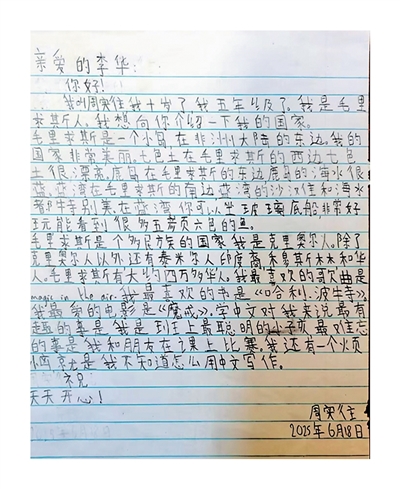 亲爱的李华：
你好！
我叫周家住我十岁了我五年级了。我是毛里
求斯人，我想向你介绍一下我的国家。
毛里求斯是一个小岛在非洲大陆的东边。我的
国家非常美丽。七色土在毛里求斯的西边七色
土很漂亮。鹿岛在毛里求斯的东边鹿岛的海水很
蓝。蓝湾在毛里求斯的南边蓝湾的沙没住和海水
都特别美在蓝湾你可以坐玻璃底船，非常好
玩能看到很多五颜六色的鱼。
毛里求斯是个多民族的国家我是克里奥尔人。除了
克里奥尔人以外还有泰米尔人印度裔穆斯林和华
人。毛里求斯有大约四万多华人。我最喜欢的歌曲是
magic in the air.我最喜欢的书是《哈利·波特》，
我最爱的电影是《魔戒》。学中文对我来说最有
趣的事是我是班上最聪明的小孩最难忘
的事是我和朋友在课上比赛。我还有一个烦
恼就是我不知道怎么用中文写作。
祝
天天开心！
2025年6月18日